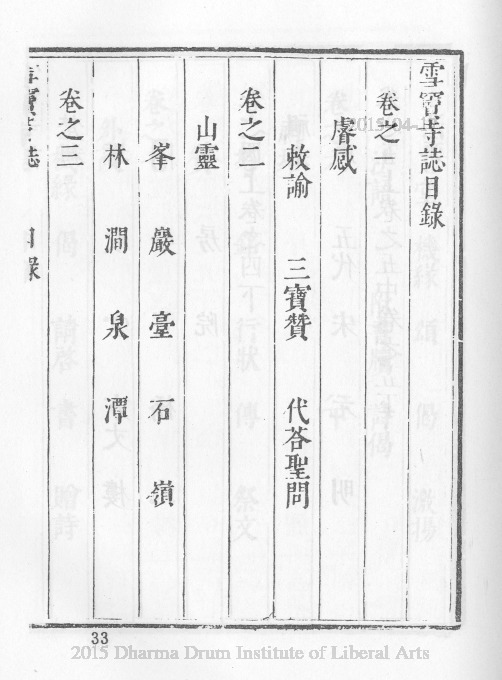 雪竇寺誌目錄
卷之一
睿感
敕諭 三寶贊 代荅聖問
卷之二
山靈
峯巖臺石嶺
林澗泉潭
卷之三
誌
目錄
33
2015 Dharma Drum Institute of Liberal Arts